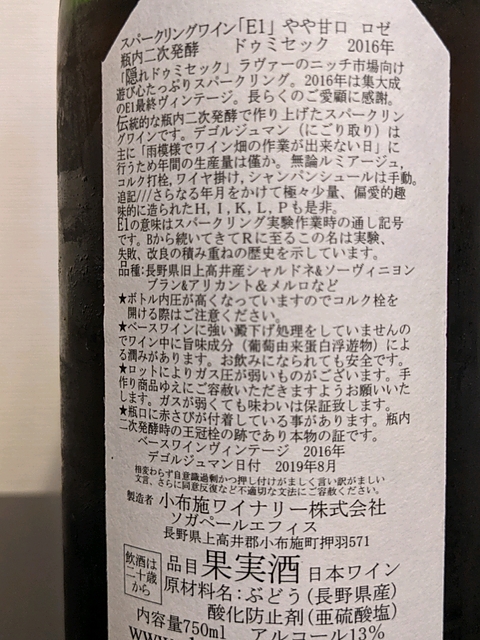 スパークリングワイン「E1」やや甘口　ロゼ
瓶内二次発酵　　ドゥミセック　2016年
「隠れドゥミセック」ラヴァーのニッチ市場向け
遊び心たっぷりスパークリング。2016年は集大成
のE1最終ヴィンテージ。長らくのご愛顧に感謝。
伝統的な瓶内二次発酵で作り上げたスパークリン
グワインです。デゴルジュマン（にごり取り）は
主に「雨模様でワイン畑の作業が出来ない日」に
行うため年間の生産量は僅か。無論ルミアージュ、
コルク打栓,ワイヤ掛け,シャンパンシュールは手動。
追記///さらなる年月をかけて極々少量、偏愛的趣
味的に造られたH, I, K, L, Pも是非。
E1の意味はスパークリング実験作業時の通し記号
です。Bから続いてきてRに至るこの名は実験、
失敗、改良の積み重ねの歴史を示しています。
品種:長野県旧上高井産シャルドネ&ソーヴィニヨン
ブラン&アリカント&メルロなど
★ボトル内圧が高くなっていますのでコルク栓を
開ける際はご注意ください。
★ベースワインに強い澱下げ処理をしていませんの
でワイン中に旨味成分（葡萄由来蛋白浮遊物）によ
る濁みがあります。お飲みになられても安全です。
★ロットによりガス圧が弱いものがございます。手
作り商品ゆえにご容赦いただきますようお願いいた
します。ガスが弱くても味わいは保証致します。
★瓶口に赤さびが付着している事があります。瓶内
二次発酵時の王冠栓の跡であり本物の証です。
ベースワインヴィンテージ　2016年
デゴルジュマン日付　2019年8月
相変わらず自意識過剰かつ押し付けがましく言い訳がましい
文言、さらに同意反復など不適切な文法にご容赦ください。
製造者 小布施ワイナリー株式会社
ソガペールエフィス
長野県上高井郡小布施町押羽571
飲酒は
二十歳
から
品目 果実酒 日本ワイン
原材料名:ぶどう(長野県産)
酸化防止剤(亜硫酸塩)
内容量750ml　アルコール13%